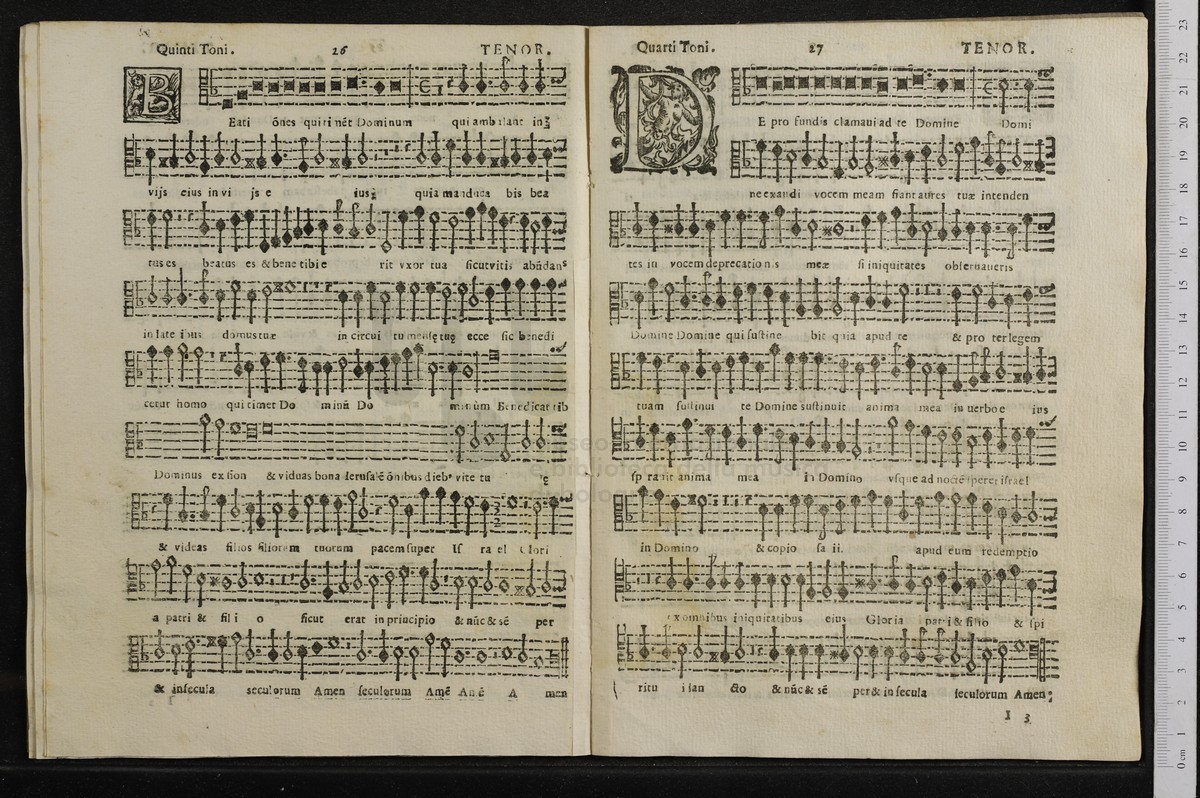 Quinti Toni. 26 TENOR.
B
Eati ōnes qui timēt Dominum qui ambulant in
vijs eius in vi js e ius quia manduca bis bea
tus es beatus es & bene tibi e rit vxor tua sicut vitis abūdans
in late ibus domus tuæ in circui tu mensę tuę ecce sic benedi
cetur homo qui timet Do minū Do minum Benedicat tib
Dominus ex sion & videas bona Ierusalē ōnibus dieb' vite tu ę
& videas filios filiorum tuorum pacem super Is ra el Glori
a patri & fili o sicut erat in principio & nūc & sē per
& in secula seculorum Amen seculorum Amē Amē A men
Quarti Toni. 27 TENOR.
D
E pro fundis clamaui ad te Domine Domi
ne exaudi vocem meam fiant aures tuæ intenden
tes in vocem deprecationis meæ si iniquitates obseruaueris
Domine Domine qui sustine bit quia apud te & pro ter legem
tuam sustinui te Domine sustinuit anima mea in uerbo e ius
sp rauit anima mea in Domino vsque ad noctē speret israel
in Domino & copio sa ii. apud eum redemptio
ex omnibus iniquitatibus eius Gloria patri & filio & spi
ritu i san cto & nūc & sē per & in secula seculorum Amen
I 3
0 cm 1 2 3 4 5 6 7 8 9 10 11 12 13 14 15 16 17 18 19 20 21 22 23
e biblioteca della musica